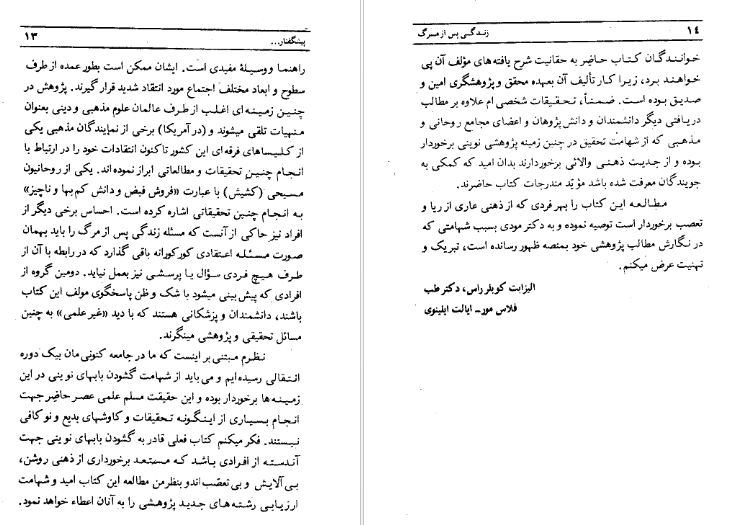 پیشگفتار... ۱۳
راهنما و وسیلهٔ مفیدی است. ایشان ممکن است بطور عمده از طرف
سطوح و ابعاد مختلف اجتماع مورد انتقاد شدید قرار گیرند. پژوهش در
چنین زمینه‌ای اغلب از طرف عالمان علوم مذهبی و دینی بعنوان
منهیات تلقی میشوند و (در آمریکا) برخی از نمایندگان مذهبی یکی
از کلیساهای فرقه‌ای این کشور تاکنون انتقادات خود را در ارتباط با
انجام چنین تحقیقات و مطالعاتی ابراز نموده‌اند. یکی از روحانیون
مسیحی (کشیش) با عبارت «فروش فیض و دانش کم‌بها و ناچیز»
به انجام چنین تحقیقاتی اشاره کرده است. احساس برخی دیگر از
افراد نیز حاکی از آنست که مسئله زندگی پس از مرگ را باید بهمان
صورت مسئله اعتقادی کورکورانه باقی گذارد که در رابطه با آن از
طرف هیچ فردی سؤال یا پرسشی نیز بعمل نیاید. دومین گروه از
افرادی که پیش‌بینی میشود با شک و ظن پاسخگوی مولف این کتاب
باشند، دانشمندان و پزشکانی هستند که با دید «غیر علمی» به چنین
مسائل تحقیقی و پژوهشی مینگرند.
نظرم مبتنی بر اینست که ما در جامعه کنونی‌مان بیک دوره
انتقالی رسیده‌ایم و می‌باید از شهامت گشودن بابهای نوینی در این
زمینه‌ها برخوردار بوده و این حقیقت مسلم علمی عصر حاضر جهت
انجام بسیاری از اینگونه تحقیقات و کاوشهای بدیع و نو کافی
نیستند. فکر میکنم کتاب فعلی قادر به گشودن بابهای نوینی جهت
آندسته از افرادی باشد که مستعد برخورداری از ذهنی روشن،
بی‌آلایش و بی‌تعصب‌اند و بنظر من مطالعه این کتاب امید و شهامت
ارزیابی رشته‌های جدید پژوهشی را به آنان اعطاء خواهد نمود.
۱۴ زندگی پس از مرگ
خوانندگان کتاب حاضر به حقانیت شرح یافته‌های مؤلف آن پی
خواهند برد، زیرا کار تألیف آن بعهده محقق و پژوهشگری امین و
صدیق بوده است. ضمناً، تحقیقات شخصی‌ام علاوه بر مطالب
دریافتی دیگر دانشمندان و دانش‌پژوهان و اعضای مجامع روحانی و
مذهبی که از شهامت تحقیق در چنین زمینه پژوهشی نوینی برخوردار
بوده و از جدیت ذهنی والائی برخوردارند بدان امید که کمکی به
جویندگان معرفت شده باشد مؤیّد مندرجات کتاب حاضرند.
مطالعه این کتاب را بهر فردی که از ذهنی عاری از ریا و
تعصب برخوردار است توصیه نموده و به دکتر مودی بسبب شهامتی که
در نگارش مطالب پژوهشی خود بمنصه ظهور رسانده است، تبریک و
تهنیت عرض میکنم.
الیزابت کوبلر راس، دکتر طب
فلاس مور ــ ایالت ایلینوی